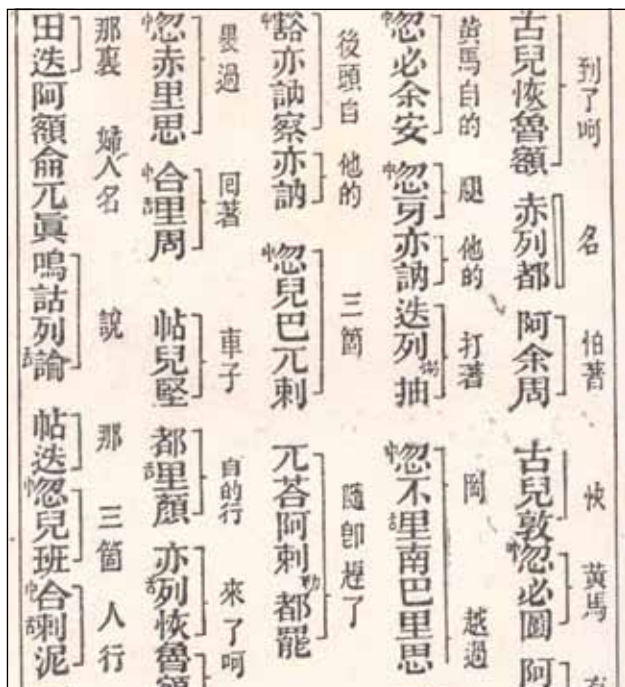 到了呵 名 怕著 快 黃馬 有
古兒恢魯額 赤列都 阿余周 古兒敦 中忽必圖 阿
黃馬自的 腿 他的 打著 岡 越過
中忽必余安 中忽牙亦訥 迭列惕抽 中忽不舌里南巴里思
後頭自 他的 三箇 隨卽趕了
中豁亦訥察 亦訥 中忽兒巴兀剌 兀荅阿剌勒都罷
過 回著 車子 自的行 來了呵
中忽赤里思 中合舌里周 帖兒堅 都舌里顏 亦舌列恢魯額
那裏 婦人名 說 那 三箇 人行
田迭 阿額侖兀眞 嗚詁列舌論 帖迭 中忽兒班 中合舌剌泥